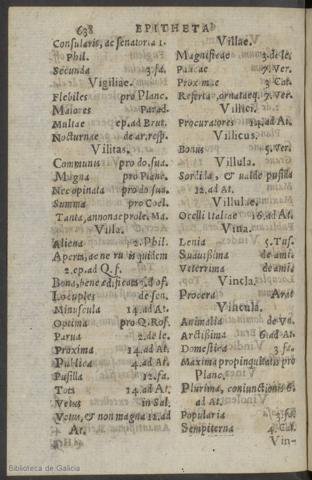 638 EPITHETA
Consularis, ac senatoria 1.
Phil.
Secunda 3. fa.
Vigiliæ.
Flebiles pro Planc.
Maiores Parad.
Multæ ep. ad Brut.
Nocturnæ de ar. resp.
Vilitas.
Communis pro do. sua.
Magna pro Planc.
Nec opinata pro do sua.
Summa pro Coel.
Tanta, annonæ prole. Ma.
Villa.
Aliena 2. Phil.
Aperta, ac ne rudis quidem
2. ep. ad Q. f.
Bona, bene ædificata Of
Locuples de sen.
Minuscula 14. ad At.
Optima pro Q. Ros.
Parua 2. de le.
Proxima 14. ad At.
Publica 4. ad At.
Pusilla 12. fa.
Tota 14. ad At.
Vetus in Sal.
Vetus, & non magna 12. ad
At.
Villae.
Magnificæ 3. de le.
Paucæ 7. Ver.
Proximæ 3. Cat.
Referta, ornatæq. 7. Ver.
Villici.
Procuratores 14. ad At.
Villicus.
Bonus 5. Ver.
Villula.
Sordida, & ualde pusilla
12. ad At.
Villulæ.
Ocelli Italiæ 16. ad At.
Vina.
Lenia 5. Tus.
Suauissima de ami.
Veterrima de ami.
Vincla.
Procera Arat
Vincula.
Animalia de Vn.
Arctissima 6. ad At.
Domestica 3. fa.
Maxima propinquitatis pro
Planc.
Plurima, coniunctionis 6.
ad At.
Popularia 3. fa.
Sempiterna 4. Cat.
Vin-
Biblioteca de Galicia